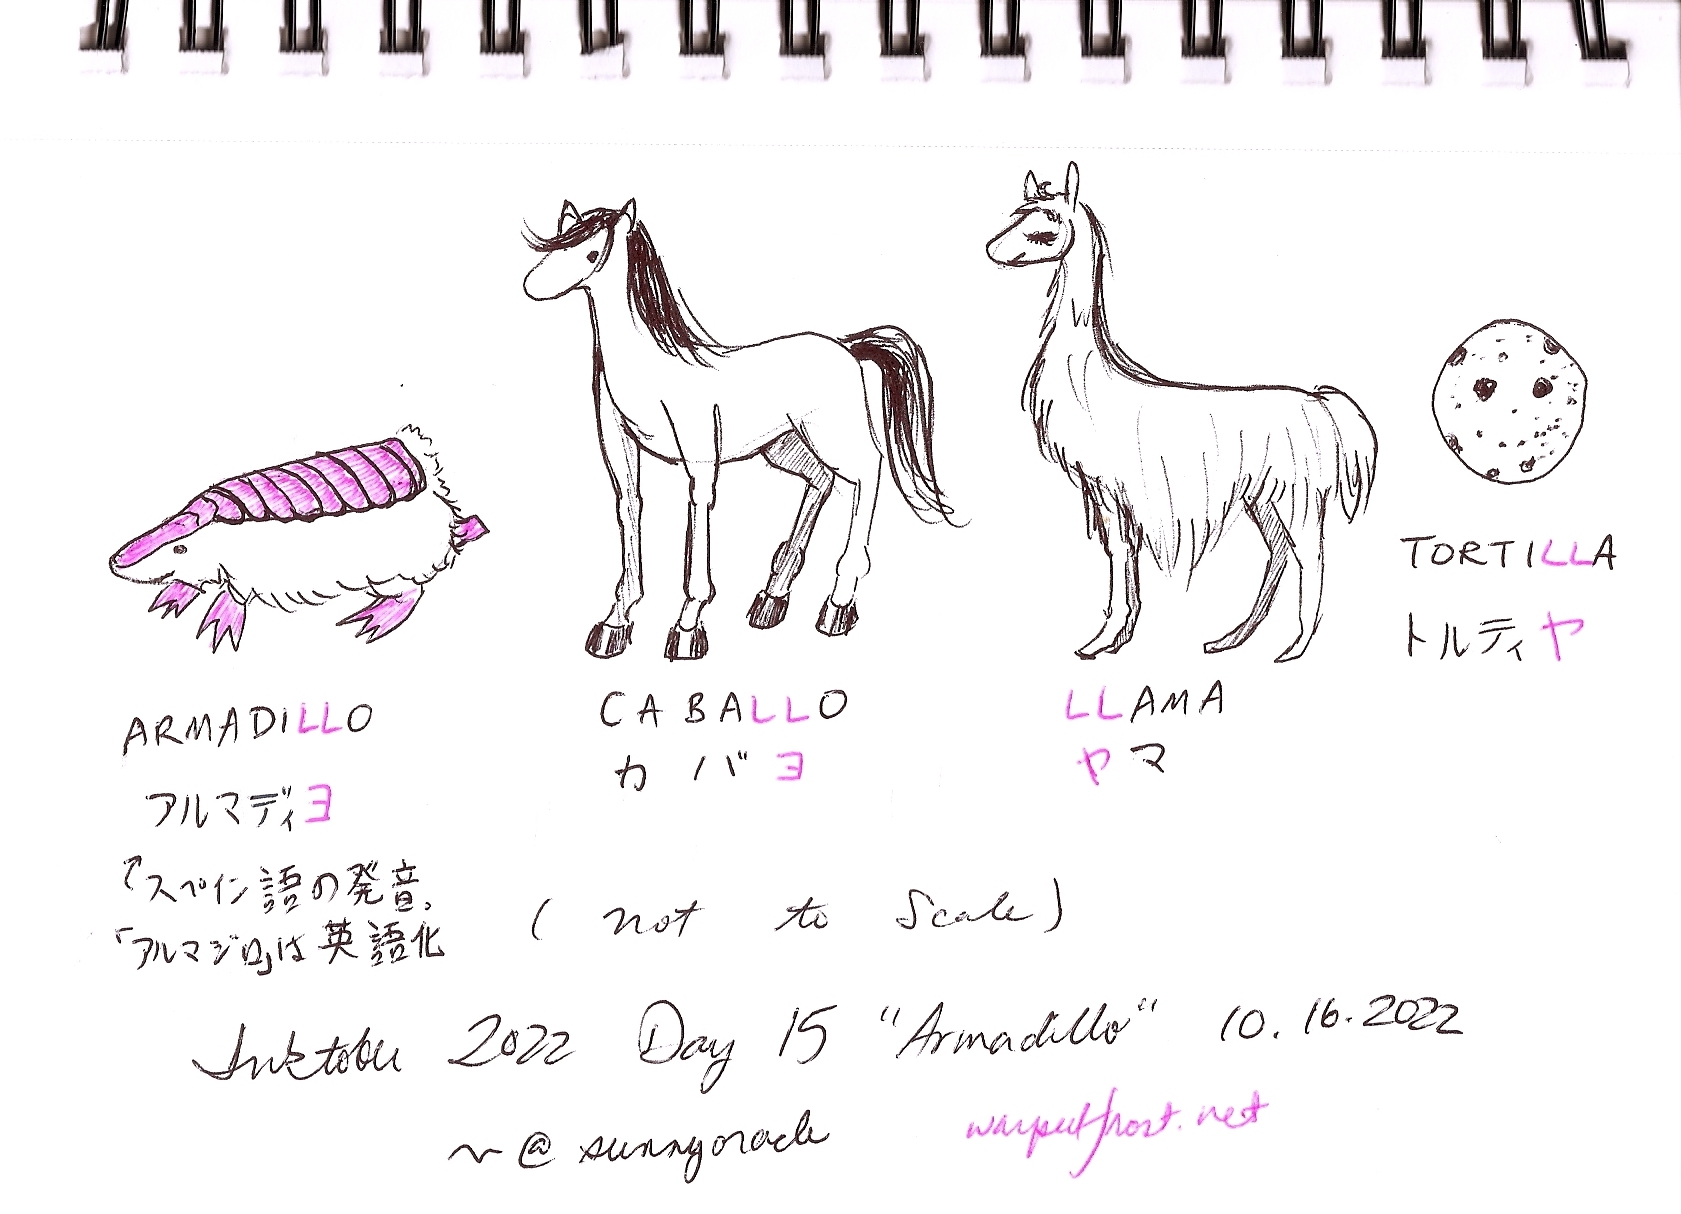 ARMADILLO
アルマディヨ
↑スペイン語の発音。
「アルマジロ」は英語化
CABALLO
カバヨ
LLAMA
ヤマ
TORTILLA
トルティヤ
(not to scale)
Inktober 2022 Day 15 "Armadillo" 10.16.2022
~@sunnyoracle
warpedfrost.net